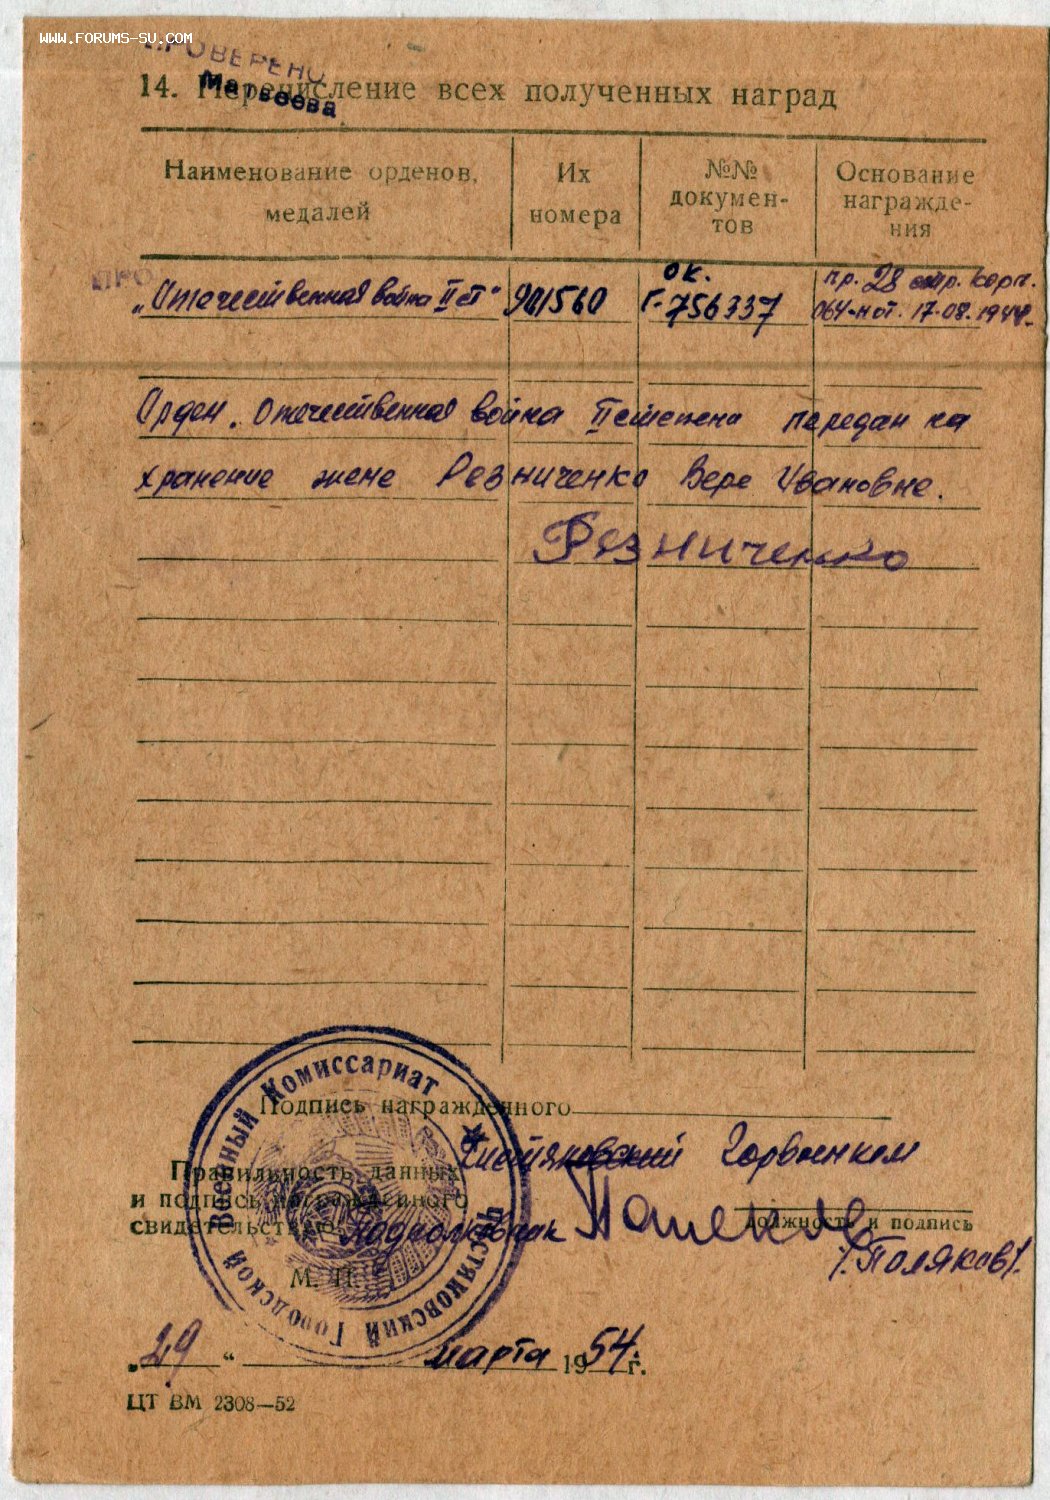 WWW.FORUMS-SU.COM
ПРОВЕРЕНО
Матвеева
14. Перечисление всех полученных наград
Наименование орденов, медалей
Их номера
№№ докумен-
тов
Основание
награжде-
ния
ПРО
„Отечественная война II ст" 901560 ок. Г-756337 пр. 28 стр. корп.
064-н от. 17.08.1944.
Орден. Отечественная война II степени передан на
хранение жене Резниченко Вере Ивановне.
Резниченко
Подпись награжденного
Чистяковский Горвоенком
Правильность данных
и подпись награжденного
свидетельствую: подполковник
должность и подпись
/Поляков/.
М. П.
Чистяковский Городской Военный Комиссариат
„29“ марта 1954 г.
ЦТ ВМ 2308—52